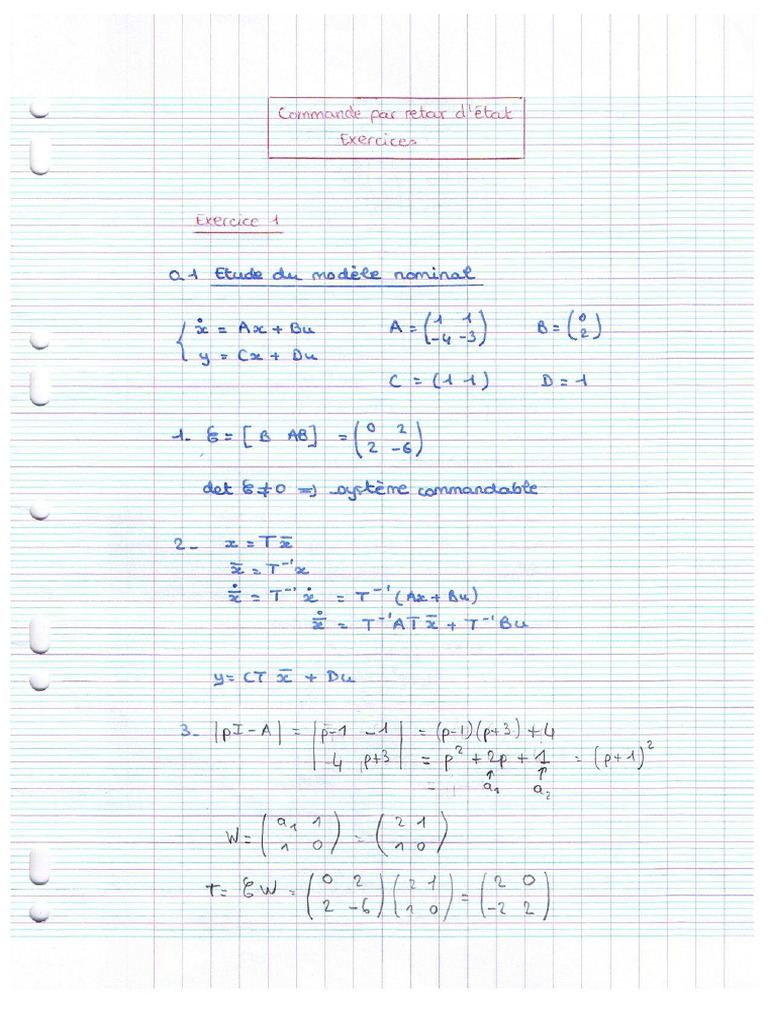 Commande par retour d'état
Exercices
Exercice 1
Q.1 Etude du modèle nominal
{ ẋ = Ax + Bu
y = Cx + Du
A = ( 1 1
-4 -3 )
B = ( 0
2 )
C = (1 1) D = 1
1- 𝒞 = [ B AB ] = ( 0 2
2 -6 )
det 𝒞 ≠ 0 => système commandable
2- x = T x̄
x̄ = T⁻¹x
x̄̇ = T⁻¹ ẋ = T⁻¹ (Ax + Bu)
x̄̇ = T⁻¹AT x̄ + T⁻¹Bu
y = CT x̄ + Du
3- |pI - A| = | p-1 -1 | = (p-1)(p+3) + 4
| 4 p+3 | = p² + 2p + 1 = (p+1)²
= a₁ a₂
W = ( a₁ 1
1 0 ) = ( 2 1
1 0 )
T = 𝒞W = ( 0 2
2 -6 ) ( 2 1
1 0 ) = ( 2 0
-2 2 )